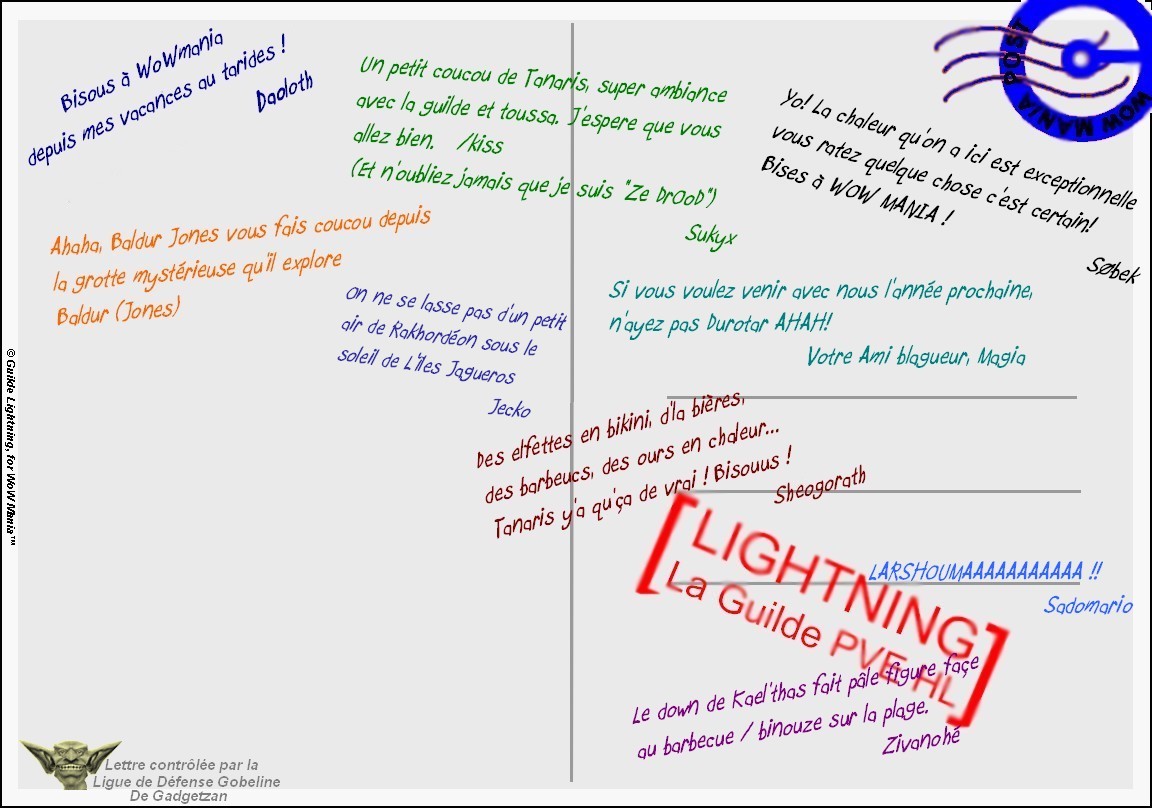 Bisous à WoWmania
depuis mes vacances au tarides !
Daoloth
Un petit coucou de Tanaris, super ambiance
avec la guilde et toussa. J'espere que vous
allez bien. /kiss
(Et n'oubliez jamais que je suis "Ze DrOoD")
Sukyx
Yo! La chaleur qu'on a ici est exceptionnelle
vous ratez quelque chose c'est certain!
Bises à WOW MANIA !
Søbek
POST
WOW MANIA
Ahaha, Baldur Jones vous fais coucou depuis
la grotte mystérieuse qu'il explore
Baldur (Jones)
On ne se lasse pas d'un petit
air de Rakhordéon sous le
soleil de L'îles Jagueros
Jecko
Si vous voulez venir avec nous l'année prochaine,
n'ayez pas Durotar AHAH!
Votre Ami blagueur, Magia
Des elfettes en bikini, d'la bières,
des barbeucs, des ours en chaleur...
Tanaris y'a qu'ça de vrai ! Bisouus !
Sheogorath
[LIGHTNING
La Guilde PVE HL]
LARSHOUMAAAAAAAAAAA !!
Sadomario
Le down de Kael'thas fait pâle figure façe
au barbecue / binouze sur la plage.
Zivanohé
© Guilde Lightning, for WoW Mania™
Lettre contrôlée par la
Ligue de Défense Gobeline
De Gadgetzan